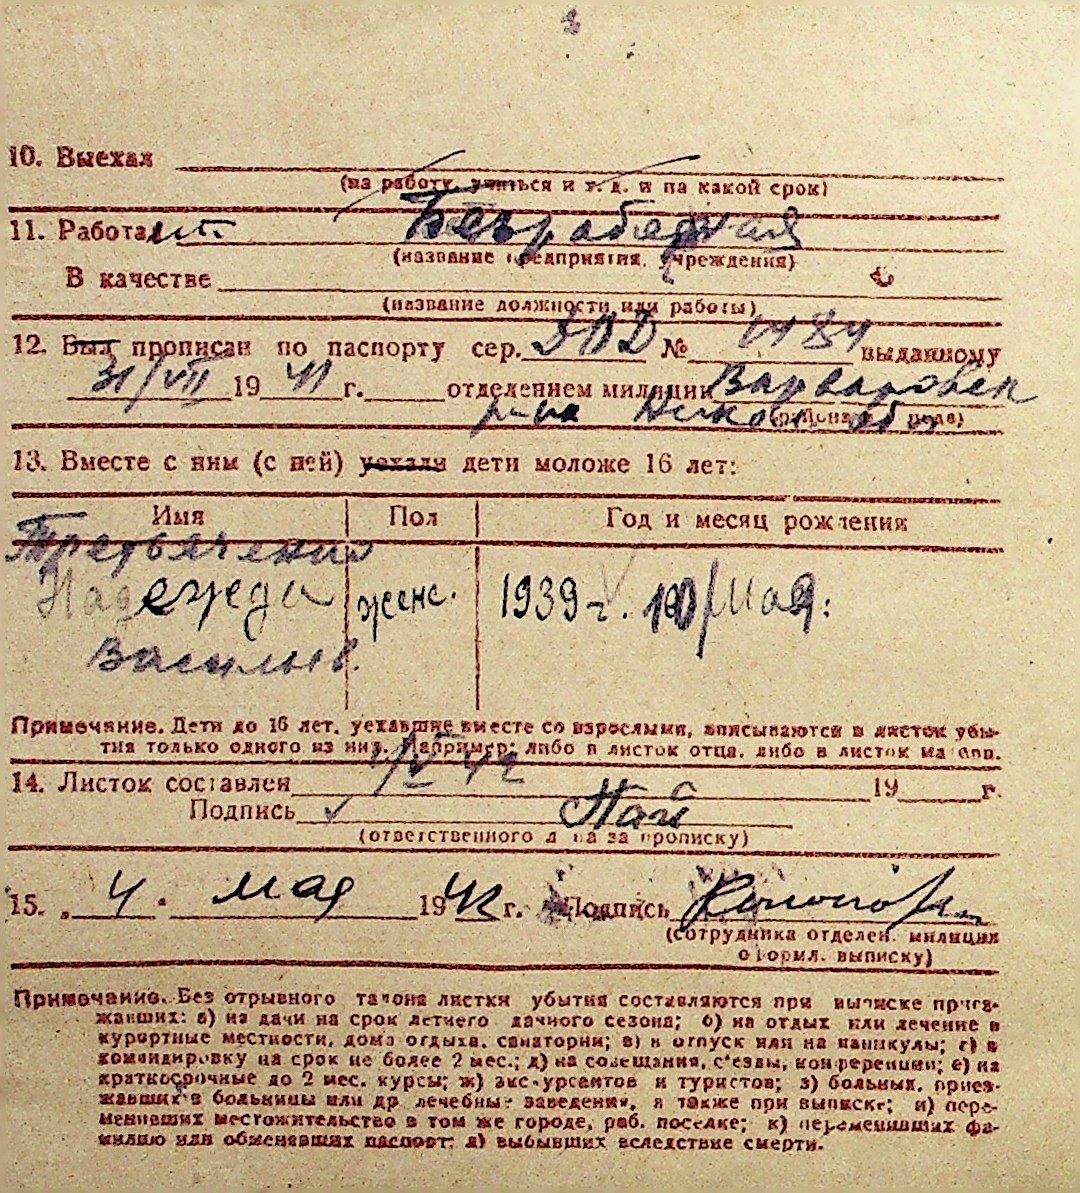 10. Выехал
(на работу, учиться и т. д. и на какой срок)
11. Работает Безработная
(название предприятия, учреждения)
В качестве
(название должности или работы)
12. Был прописан по паспорту сер. № выданному
31/VII 1941 г. отделением милиции Варваровск
р-на Никол обл
13. Вместе с ним (с ней) уехали дети моложе 16 лет:
Имя Пол Год и месяц рождения
Надежда женс. 1939 г. мая:
Васильев.
Примечание. Дети до 16 лет, уехавшие вместе со взрослыми, вписываются в листок убы-
тия только одного из них. Например: либо в листок отца, либо в листок матери.
14. Листок составлен 1/V 42 19 г.
Подпись
(ответственного л на за прописку)
15. „4." мая 1942 г. Подпись
(сотрудника отделен. милиции
оформл. выписку)
Примечание. Без отрывного талона листки убытия составляются при выписке приез-
жавших: а) на дачи на срок летнего дачного сезона; б) на отдых или лечение в
курортные местности, дома отдыха, санатории; в) в отпуск или на каникулы; г) в
командировку на срок не более 2 мес.; д) на совещания, съезды, конференции; е) на
краткосрочные до 2 мес. курсы; ж) экскурсантов и туристов; з) больных, приез-
жавших в больницы или др лечебные заведения, а также при выписке; и) пере-
менивших местожительство в том же городе, раб. поселке; к) переменивших фа-
милию или обменявших паспорт; л) выбывших вследствие смерти.